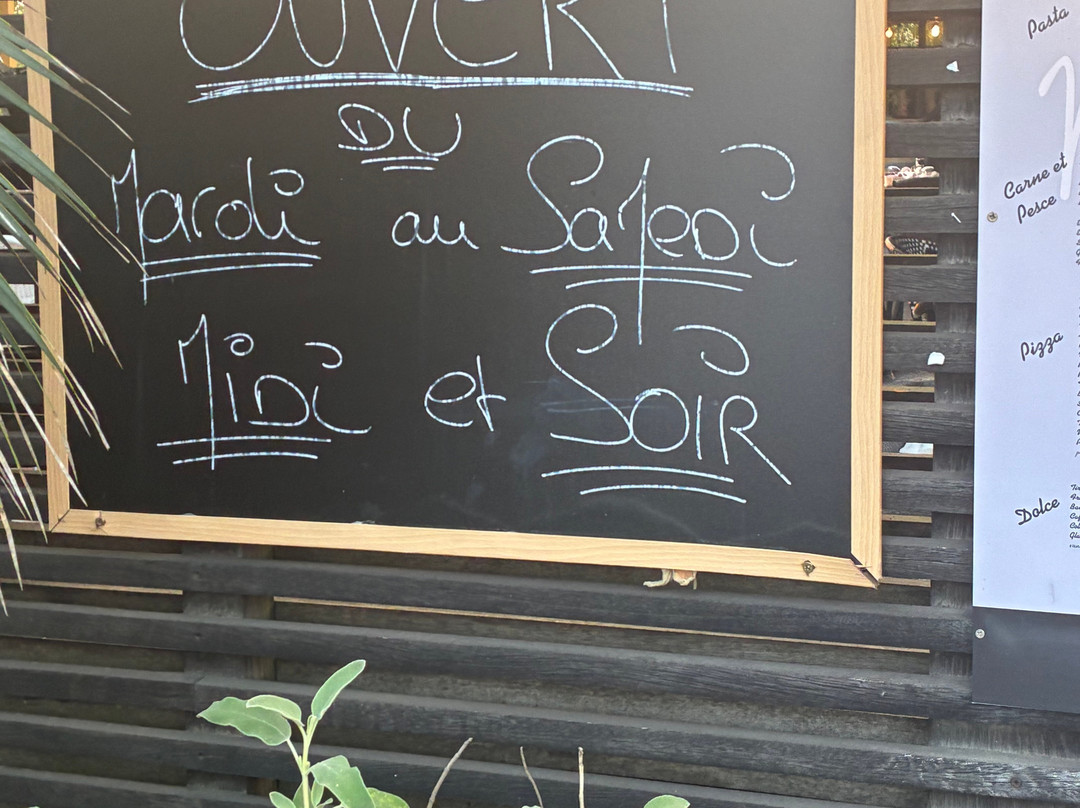 OUVERT
DU
Mardi au Samedi
Midi et SOIR
Pasta
Carne et
Pesce
Pizza
Dolce